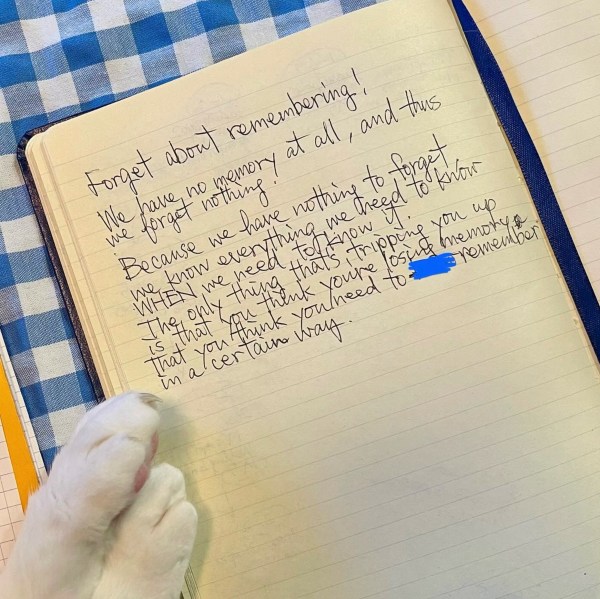 Forget about remembering!
We have no memory at all, and thus
we forget nothing.
Because we have nothing to forget
we know everything we need to know
WHEN we need to know it.
The only thing that's tripping you up
is that you think you're losing memory &
that you think you need to remember
in a certain way.